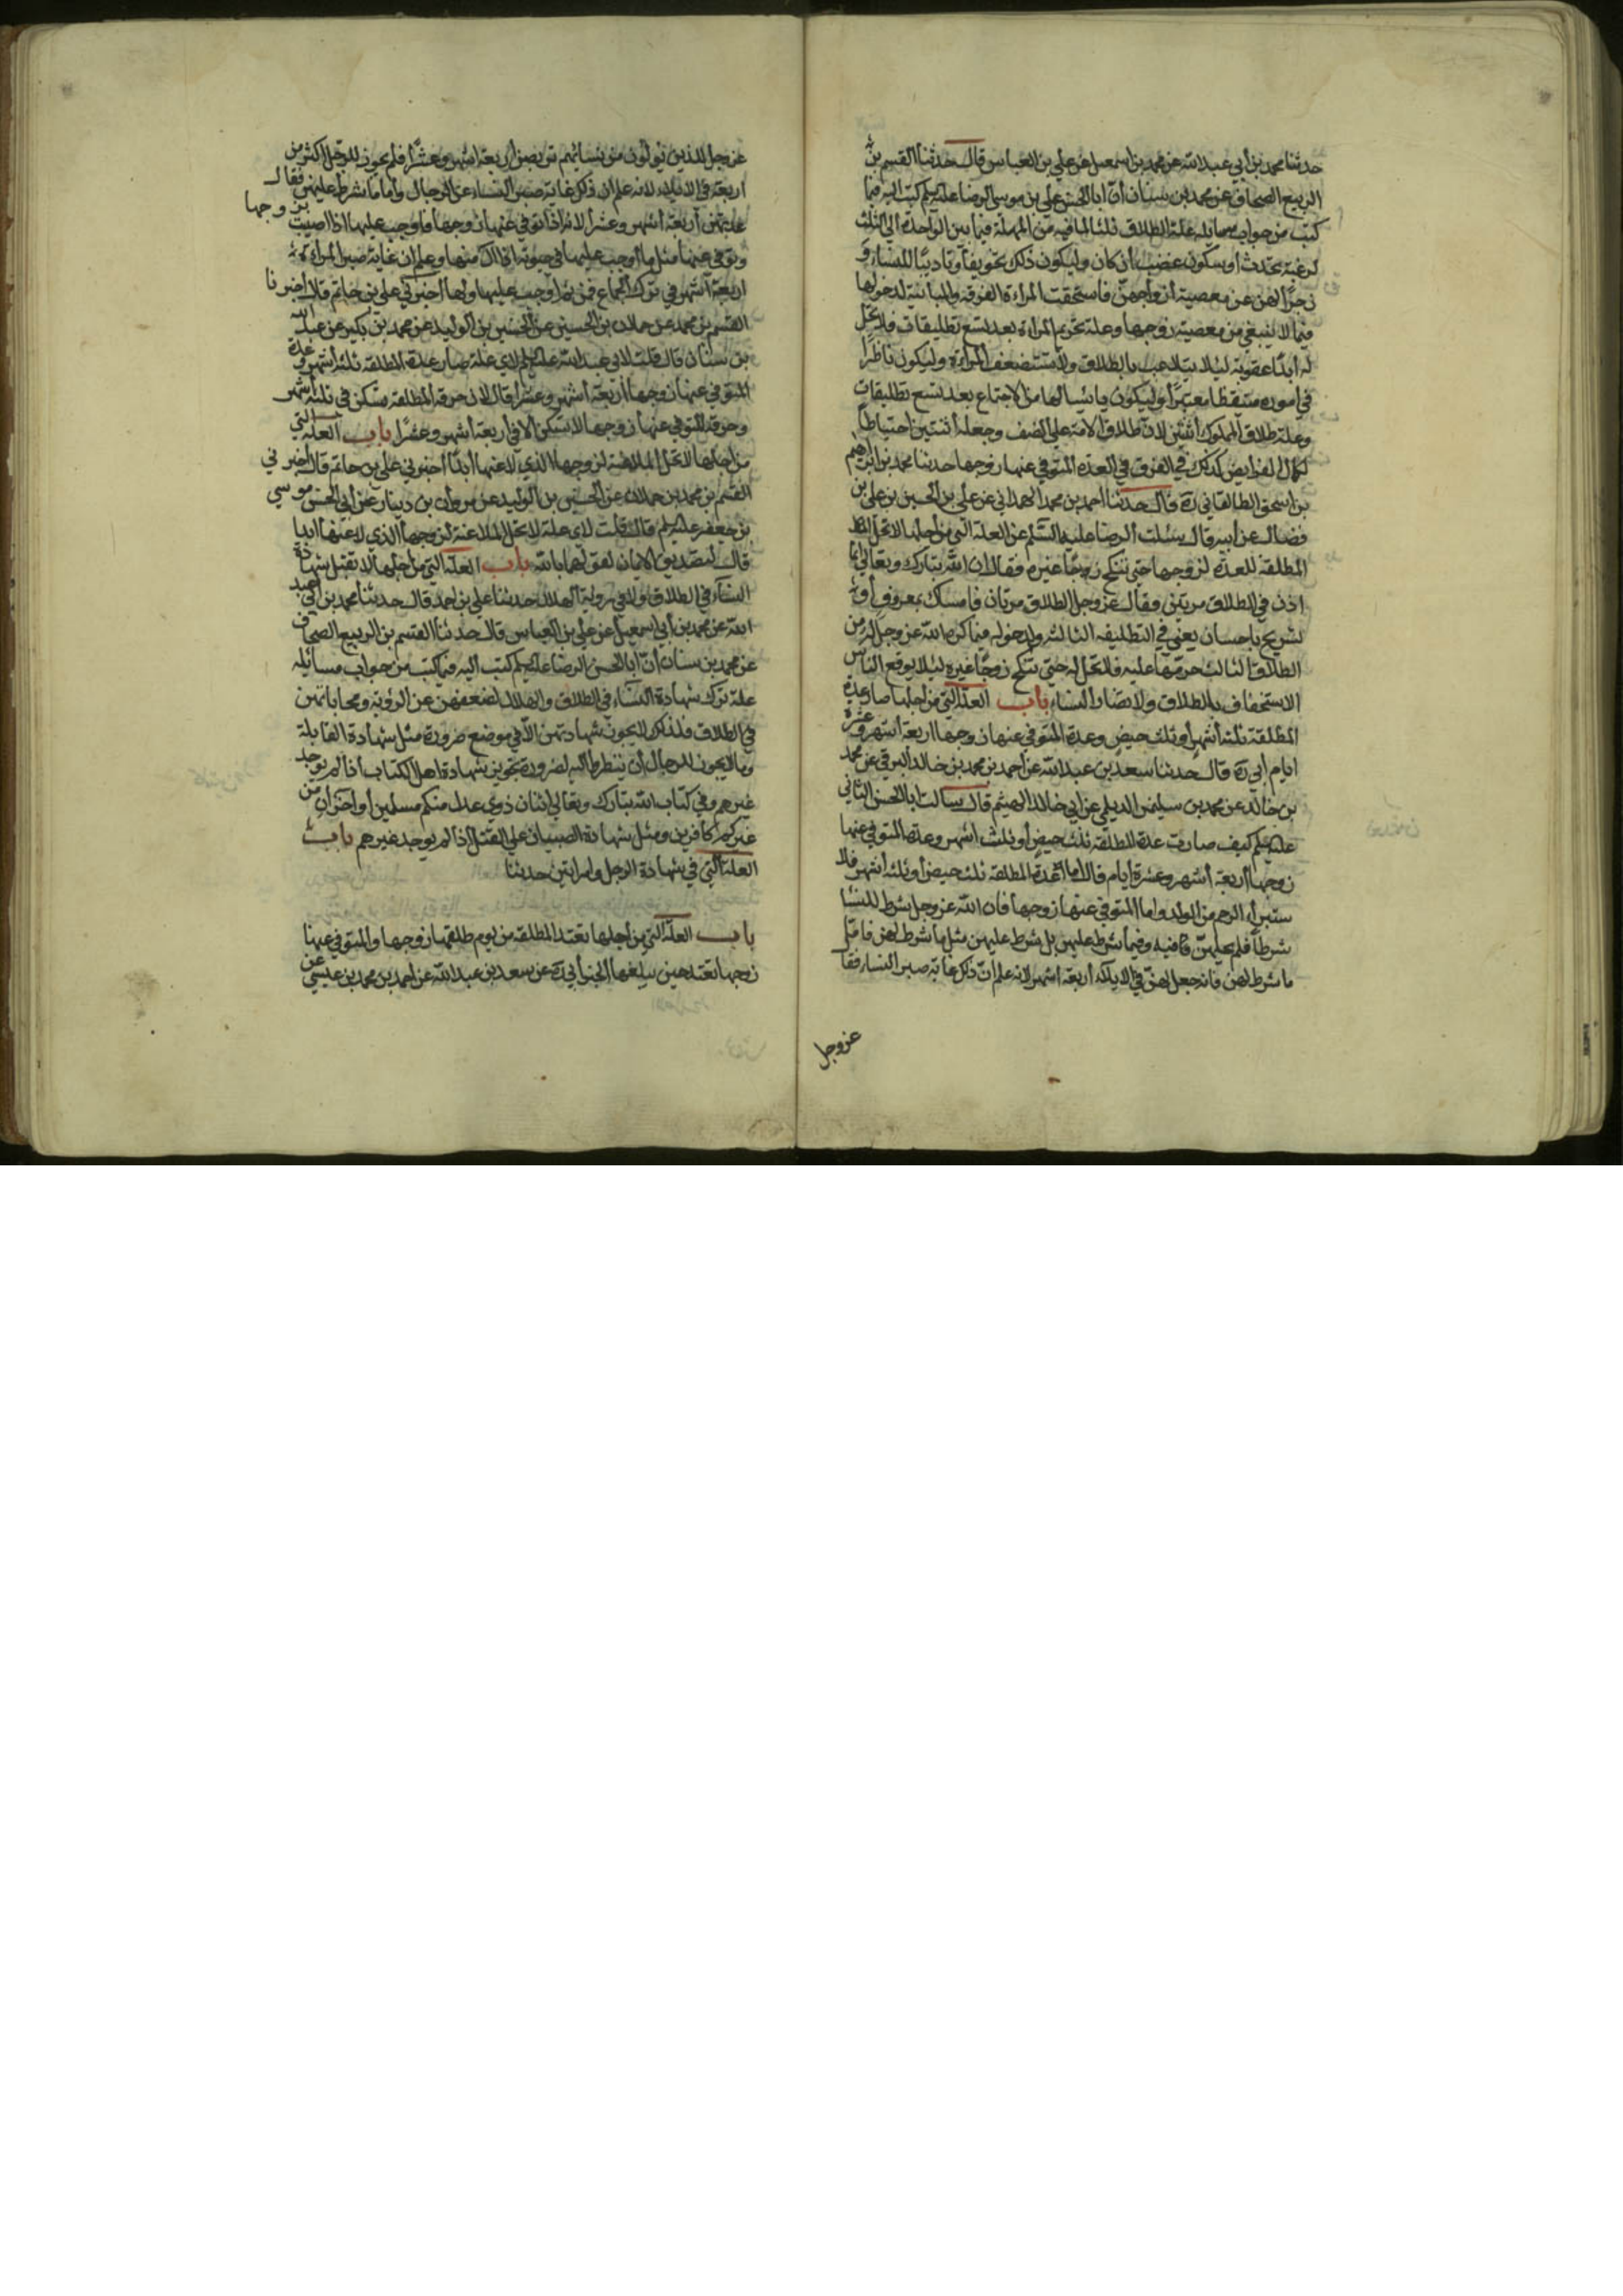 حدثنا محمد بن أبي عبد الله عن محمد بن اسمعيل عن علي بن العباس قال حدثنا القسم بن
الربيع الصحاف عن محمد بن سنان أن ابا الحسن علي بن موسى الرضا عليه السلم كتب اليه فيما
كتب من جواب مسائله علة الطلاق ثلثا لما فيه من المهلة فيما بين الواحدة الي الثلث
لرغبة تحدث او سكون غضب أن كان وليكون ذلك تخويفا وتاديبا للنساء و
زجرا لهن عن معصية ازواجهن فاستحقت المراءة الفرقة والمباينة لدخولها
فيما لا ينبغي من معصية زوجها وعلة تحريم المراءة بعد تسع تطليقات فلا تحل
له أبدا عقوبة ليلا يتلاعب بالطلاق ولا يستضعف المراءة وليكون ناظرا
في أموره متيقظا معتبرا وليكون يائسا لهما من الاجتماع بعد تسع تطليقات
وعلة طلاق المملوك أثنتين لان طلاق الامة علي النصف وجعله أثنتين احتياطا
لكمال الفرايض كذلك في الفرق في العدة المتوفي عنها زوجها حدثنا محمد بن ابرهيم
بن اسحق الطالقاني ره قال حدثنا احمد بن محمد الهمداني عن علي بن الحسين بن علي بن
فضال عن أبيه قال سئلت الرضا عليه السلم عن العلة التي من أجلها لا تحل
المطلقة للعدة لزوجها حتي تنكح زوجا غيره فقال ان الله تبارك وتعالي انما
اذن في الطلاق مرتين فقال عز وجل الطلاق مرتان فامساك بمعروف أو
تسريح باحسان يعني في التطليقه الثالثه ولدخوله فيما كره الله عز وجل له من
الطلاق الثالث حرمها عليه فلا تحل له حتي تنكح زوجا غيره ليلا يوقع الناس
الاستخفاف بالطلاق ولا تضار النساء باب العلة التي من اجلها صار عدة
المطلقة ثلثة أشهر أو ثلث حيض وعدة المتوفي عنها زوجها اربعة أشهر وعشرة
ايام أبي ره قال حدثنا سعد بن عبد الله عن احمد بن محمد بن خالد البرقي عن محمد
بن خالد عن محمد بن سليمن الديلمي عن ابي خالد الهيثم قال سالت ابا الحسن الثاني
عليه السلم كيف صارت عدة المطلقة ثلث حيض أو ثلث اشهر وعدة المتوفي عنها
زوجها أربعة أشهر وعشرة ايام قال اما عدة المطلقة ثلث حيض أو ثلثة أشهر فلا
ستبراء الرحم من الولد واما المتوفي عنها زوجها فان الله عز وجل شرط للنسا
شرطا فلم يحلهن فيه وفيما شرط عليهن بل شرط عليهن مثل ما شرط لهن فاما
ما شرط لهن فانه جعل لهن في الايلاء أربعة اشهر لانه علم ان ذلك غاية صبر النساء فقا
عز وجل
عز وجل للذين يولون من نسائهم تربص أربعة اشهر وعشرا فلم يجوز للرجل اكثر من
اربعة في الايلاء لانه علم ان ذلك غاية صبر النساء عن الرجال وأما ما شرط عليهن فقال
عدتهن أربعة أشهر وعشرا لانه اذا توفي عنها زوجها فاوجب عليها اذا اصيبت بزوجها
وتوفي عنها مثل ما أوجب عليها في حيوته اذا الى منها وعلم ان غاية صبر المراءة
اربعة أشهر في ترك الجماع فمن ثم أوجب عليها ولها أخبرني علي بن حاتم قال أخبرنا
القسم بن محمد عن حمدان بن الحسين عن الحسين بن الوليد عن محمد بن بكير عن عبد الله
بن سنان قال قلت لابي عبد الله عليه السلم لاي علة صار عدة المطلقة ثلثة أشهر وعدة
المتوفي عنها زوجها أربعة أشهر وعشرا قال لان حرقة المطلقة تسكن في ثلثة أشهر
وحرقة المتوفي عنها زوجها لا تسكن الا في أربعة أشهر وعشرا باب العلة التي
من أجلها لا تحل الملاعنة لزوجها الذي لاعنها أبدا أخبرني علي بن حاتم قال أخبرني
القسم بن محمد بن حمدان عن الحسين بن الوليد عن مروان بن دينار عن أبي الحسن موسي
بن جعفر عليه السلم قال قلت لاي علة لا تحل الملاعنة لزوجها الذي لاعنها أبدا
قال لتصديق الايمان لقولهما بالله باب العلة التي من اجلها لا تقبل شهادة
النساء في الطلاق ولا في روية الهلال حدثنا علي بن احمد قال حدثنا محمد بن أبي عبد
الله عن محمد بن أبي اسمعيل عن علي بن العباس قال حدثنا القسم بن الربيع الصحاف
عن محمد بن سنان أن ابا الحسن الرضا عليه السلم كتب اليه فيما كتب من جواب مسايله
علة ترك شهادة النساء في الطلاق والهلال لضعفهن عن الرؤية ومحاباتهن
في الطلاق فلذلك لا يجوز شهادتهن الا في موضع ضرورة مثل شهادة القابلة
وما لا يجوز للرجال أن ينظروا اليه لضرورة تجويز شهادة اهل الكتاب اذا لم يوجد
غيرهم وفي كتاب الله تبارك وتعالي اثنان ذوي عدل منكم مسلمين أو اخران من
غيركم كافرين ومثل شهادة الصبيان علي القتل اذا لم يوجد غيرهم باب
العلة التي في شهادة الرجل وامراتين حدثنا
باب العلة التي من أجلها تعتد المطلقة من يوم طلقها زوجها والمتوفي عنها
زوجها تعتد حين يبلغها الخبر أبي ره عن سعد بن عبد الله عن احمد بن محمد بن عيسي عن